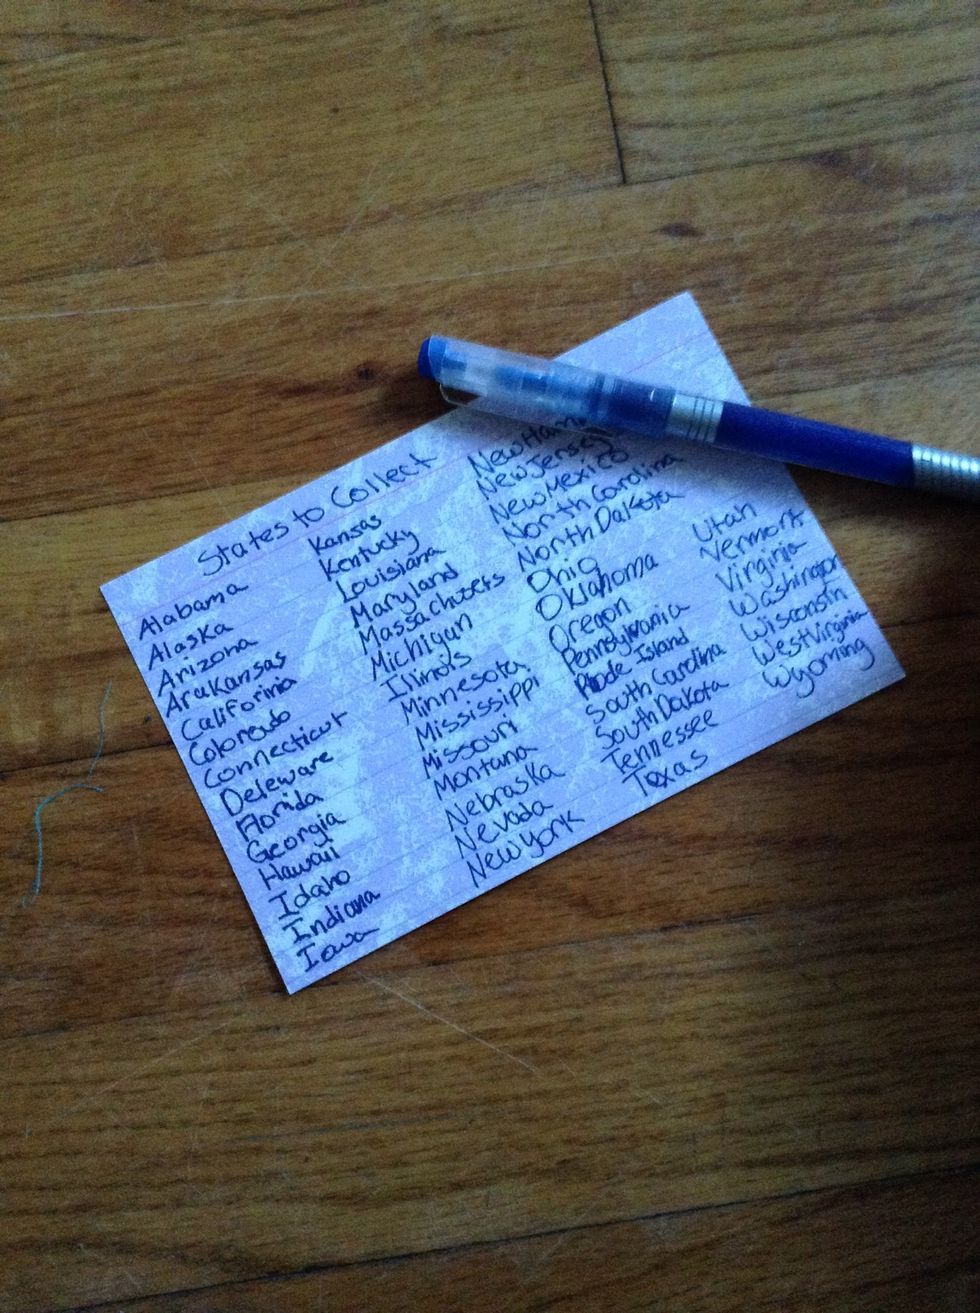 States to Collect
Alabama
Alaska
Arizona
Arukansas
Califorinia
Colorendo
Connecticut
Deleware
Florida
Georgia
Hawaii
Idaho
Indiana
Iowa
Kansas
Kentucky
Louisiana
Maryland
Massachusets
Michigun
Illinois
Minnesota
Mississippi
Missouri
Montana
Nebraska
Nevada
New York
New
New Jersey
New Mexico
North Carolina
North Dakota
Ohio
Oklahoma
Oregon
Pennsylvania
Rhode Island
South Carolina
South Dakota
Tennessee
Texas
Utah
Vermont
Virginia
Washington
Wisconstn
West Virginia
Wyoming